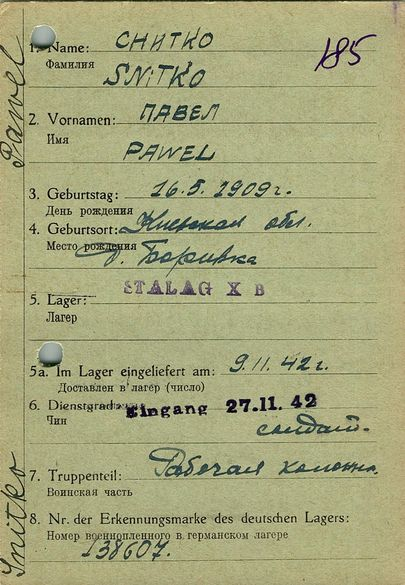 185
1. Name: СНИТКО
Фамилия
SNiTKO
2. Vornamen: ПАВЕЛ
Имя
PAWEL
3. Geburtstag: 16.5.1909г.
День рождения
4. Geburtsort: Киевская обл.
Место рождения д. Боривка
5. Lager: STALAG X B
Лагерь
5a. Im Lager eingeliefert am: 9.11.42г.
Доставлен в лагерь (число)
6. Dienstgrad Eingang 27.11.42
Чин солдат.
7. Truppenteil: Рабочая колонна.
Воинская часть
8. Nr. der Erkennungsmarke des deutschen Lagers:
Номер военнопленного в германском лагере
138607.
Pawel
Snitko